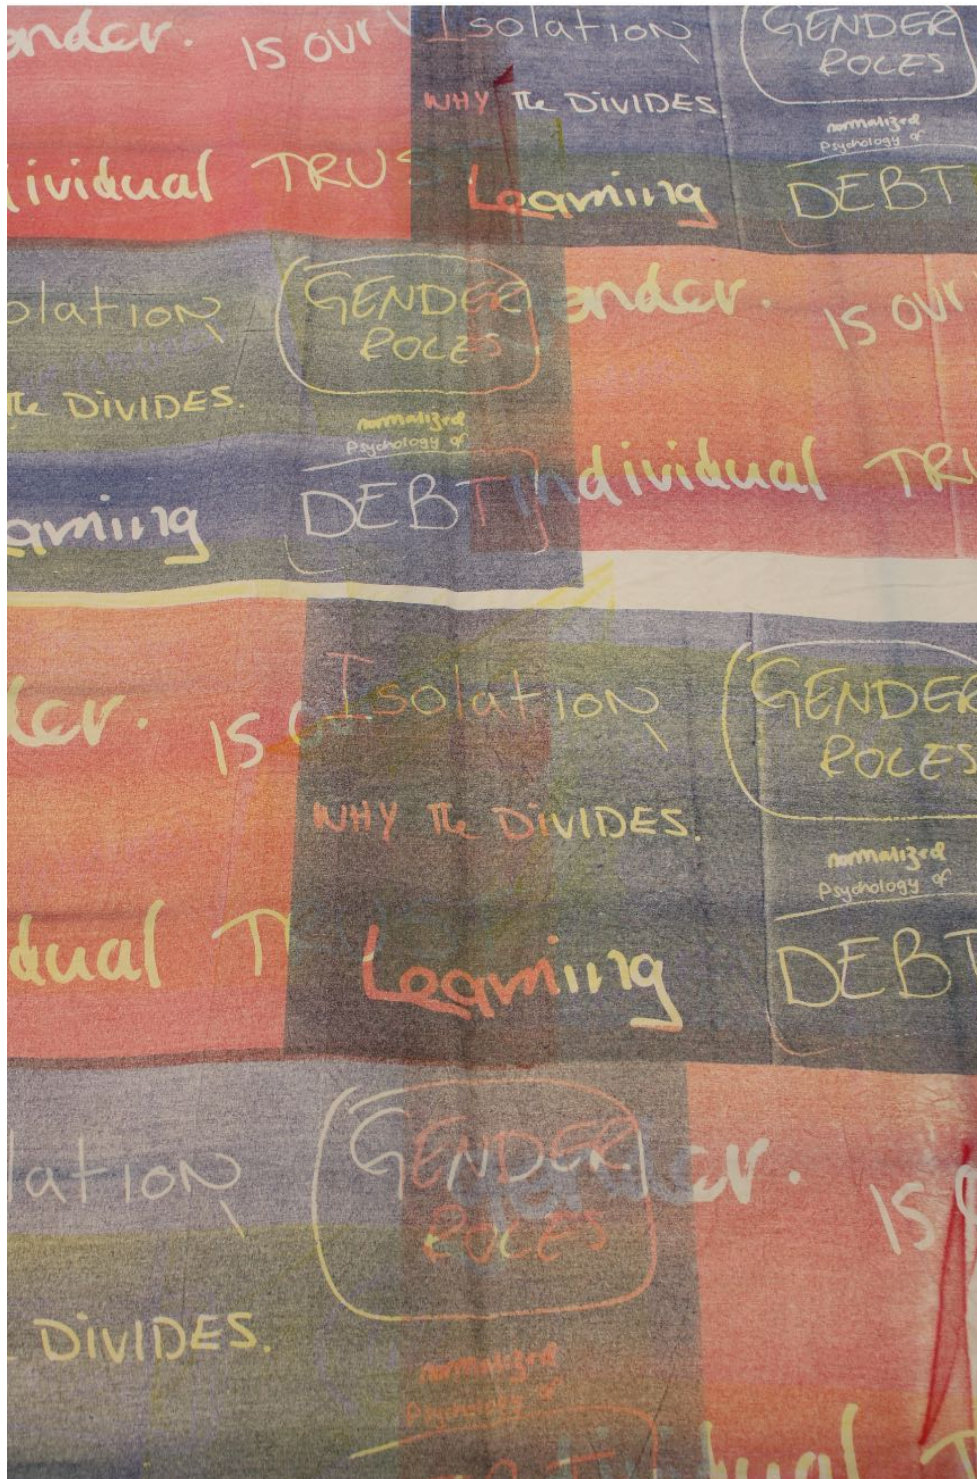 ender. IS OUR
Isolation
GENDER
ROLES
WHY The DiVIDES
normalized
Psychology of
ividual TRUS
Learning
DEBT
olation
GENDER
ROLES
ender. IS OUR
The DiVIDES.
normalized
Psychology of
individual TRU
arning
DEBT
der. IS
Isolation
GENDER
ROLES
WHY The DiVIDES.
normalized
Psychology of
dual T
Learning
DEBT
lation
GENDER
ROLES
gender. IS
DiVIDES.
normalized
Psychology of
dividual T